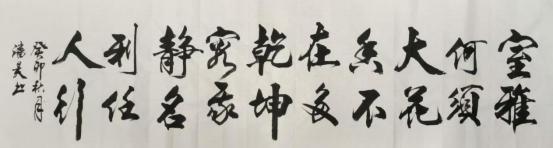 室雅
何須
大花
香不
在多
乾坤
容我
静名
利任
人行
癸卯秋月